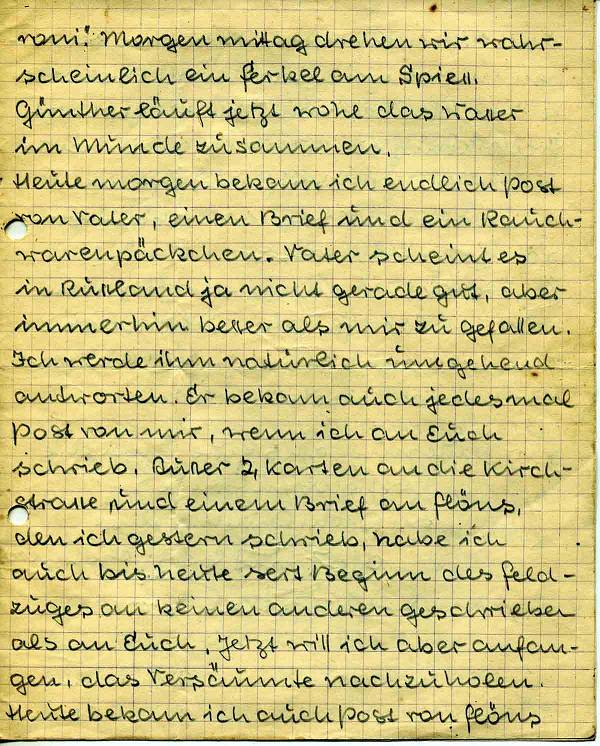 roni! Morgen mittag drehen wir wahr-
scheinlich ein Ferkel am Spieß.
Günther läuft jetzt wohl das Wasser
im Munde zusammen.
Heute morgen bekam ich endlich Post
von Vater, einen Brief und ein Rauch-
warenpäckchen. Vater scheint es
in Russland ja nicht gerade gut, aber
immerhin besser als mir zu gefallen.
Ich werde ihm natürlich umgehend
antworten. Er bekam auch jedesmal
Post von mir, wenn ich an Euch
schrieb. Ausser 2 Karten an die Kirch-
strasse und einem Brief an Flöns,
den ich gestern schrieb, habe ich
auch bis heute seit Beginn des Feld-
zuges an keinen anderen geschrieben
als an Euch. Jetzt will ich aber anfan-
gen, das Versäumte nachzuholen.
Heute bekam ich auch Post von Flöns